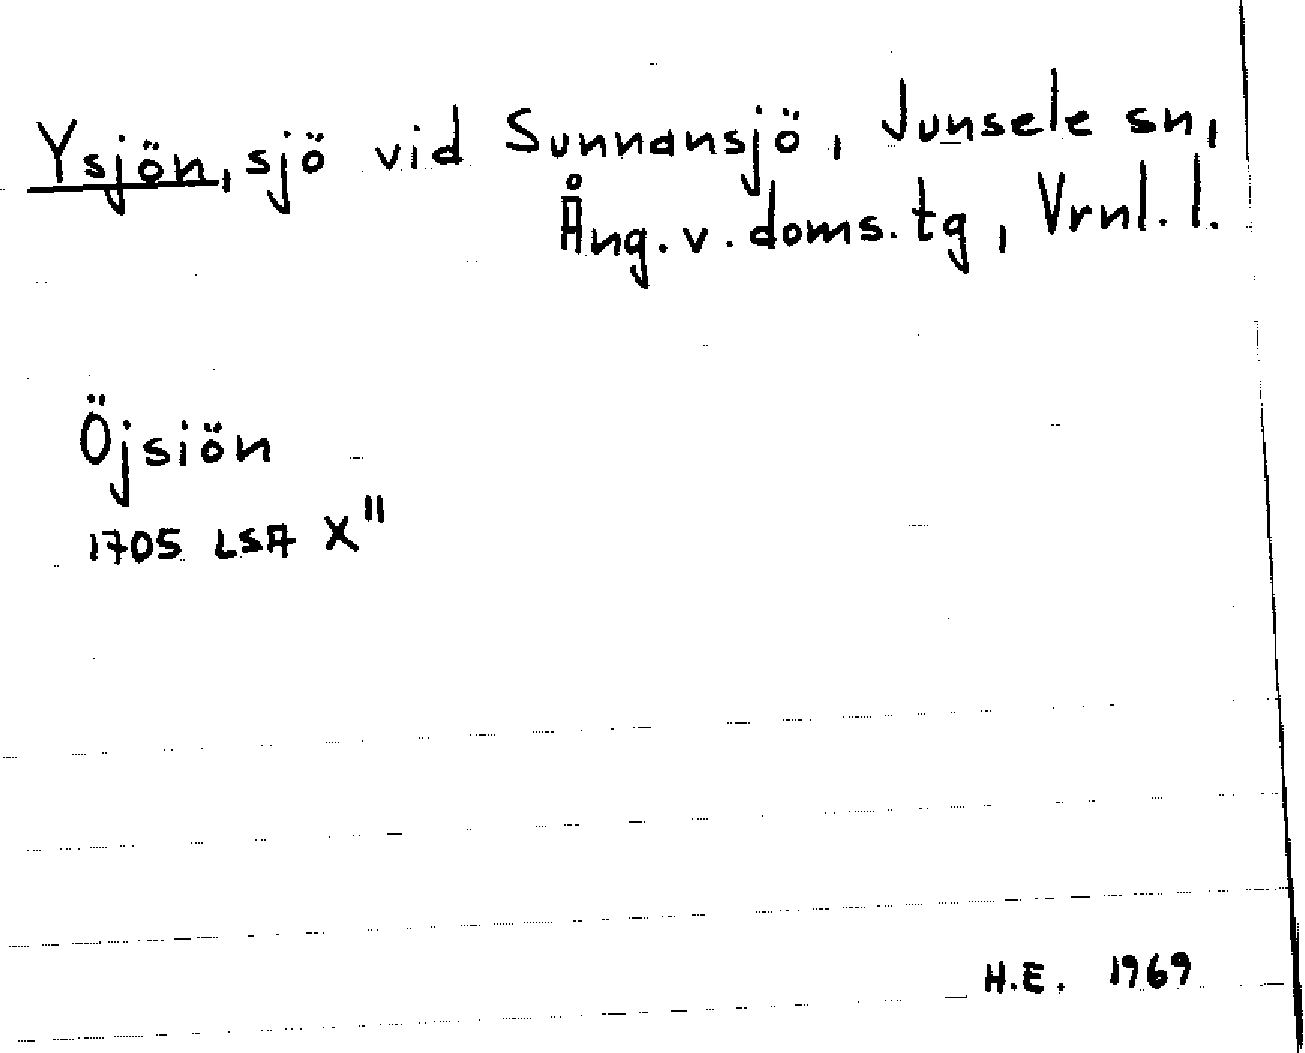 Ysjön, sjö vid Sunnansjö, Junsele sn,
Ång. v. doms. tg, Vrnl. l.
Öjsiön
1705 LSA X"
H.E. 1969